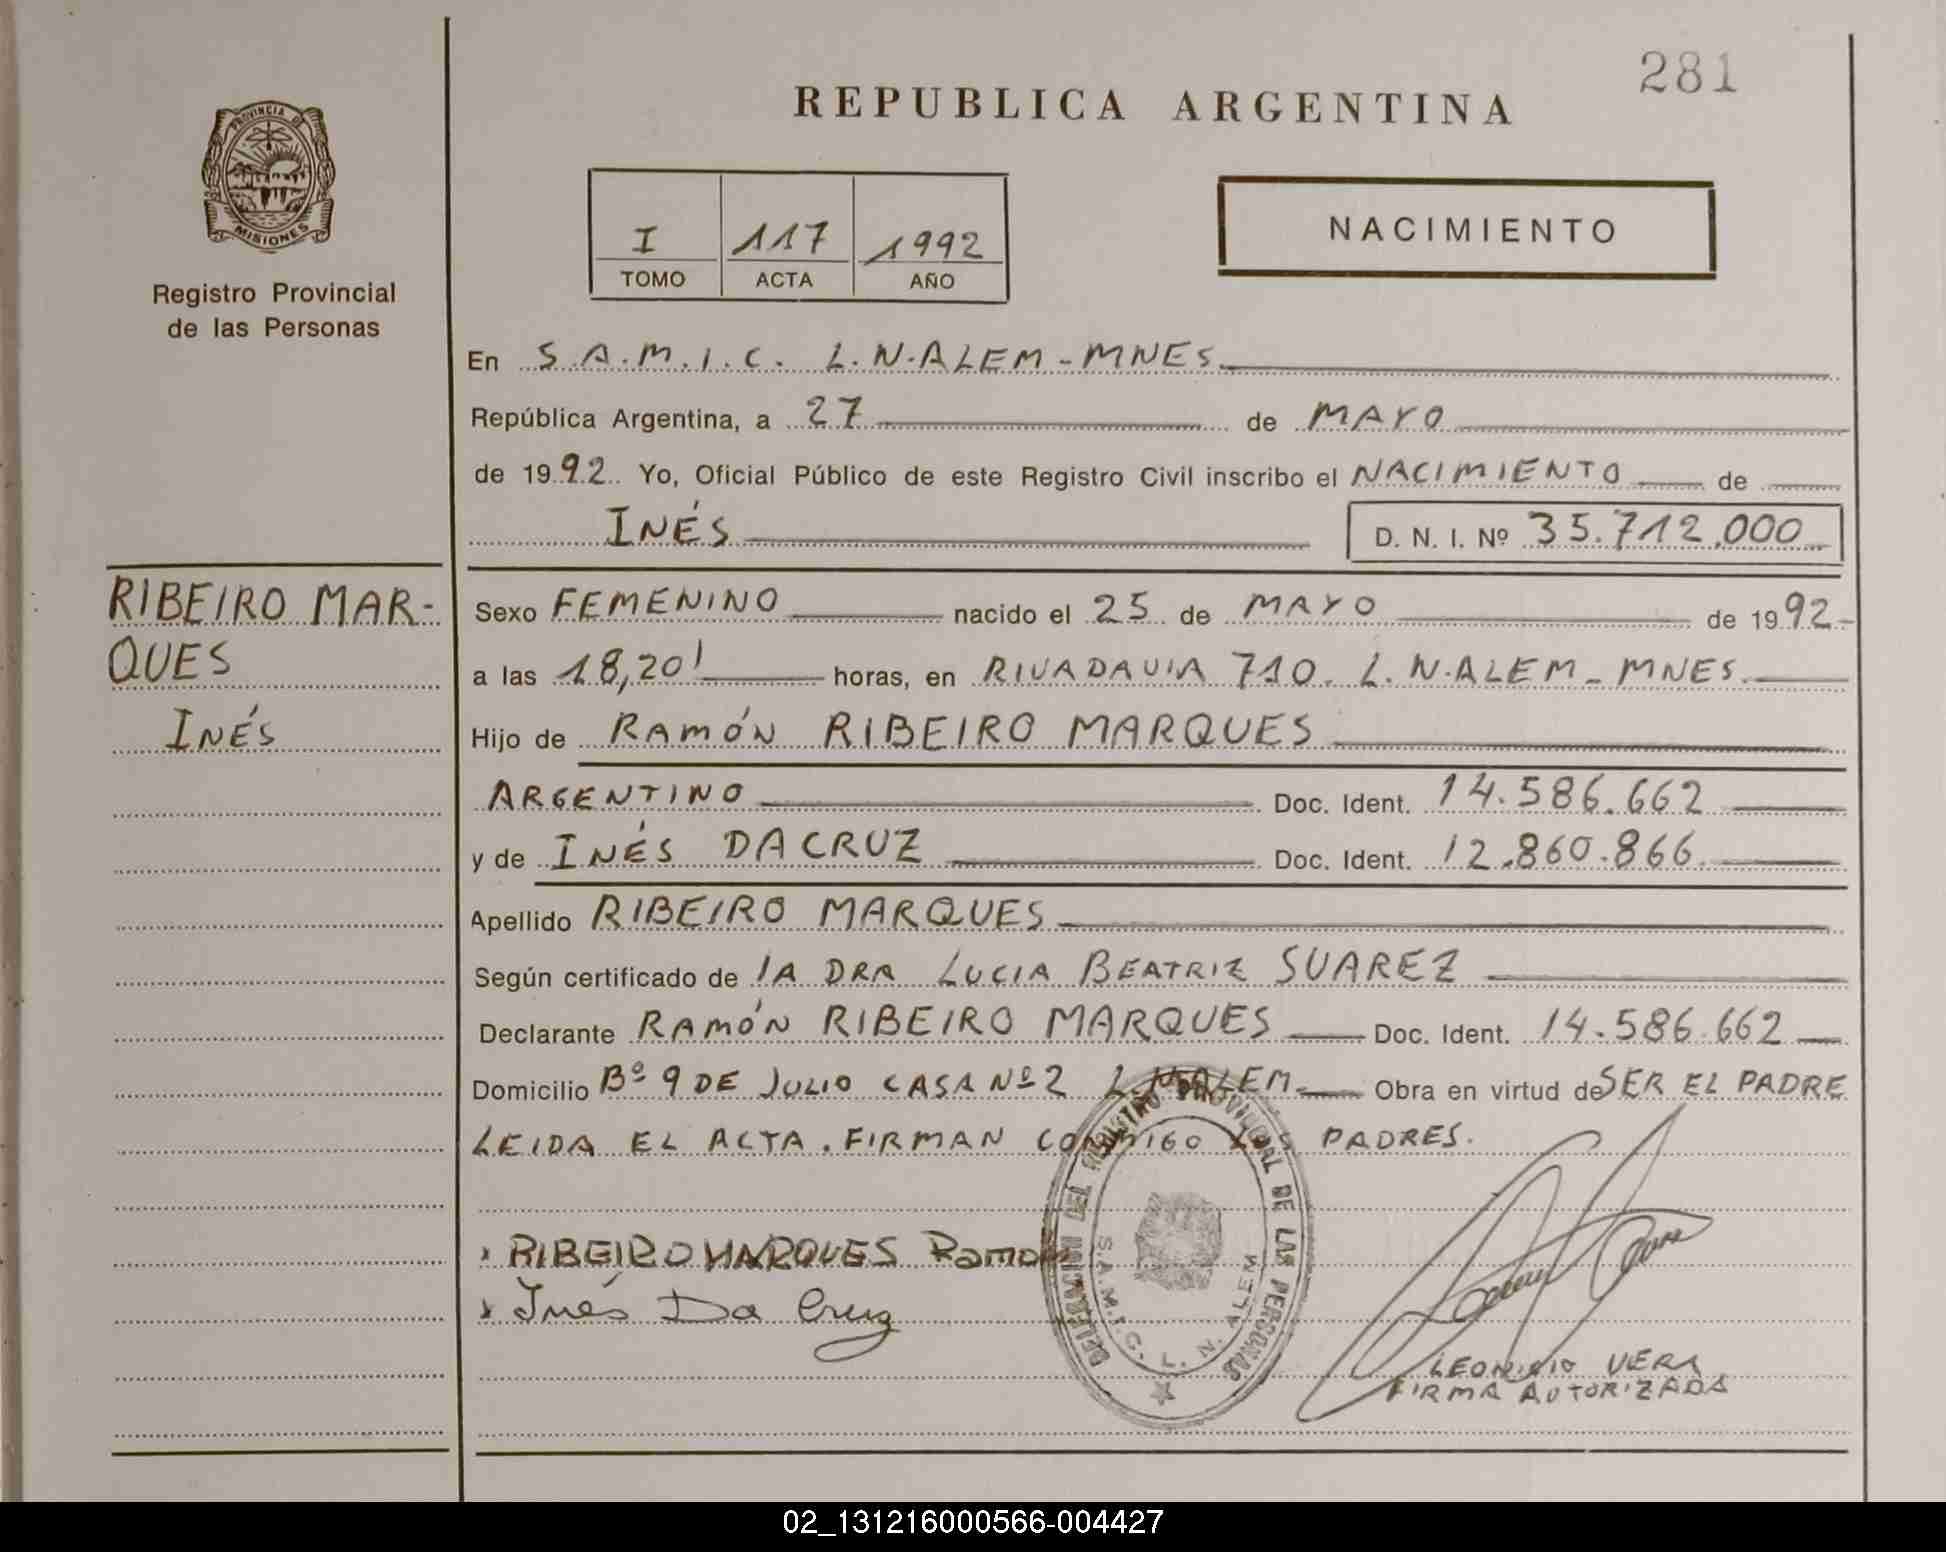 281
REPUBLICA ARGENTINA
PROVINCIA DE
MISIONES
Registro Provincial
de las Personas
I 117 1992
TOMO ACTA AÑO
NACIMIENTO
En S.A.M.I.C. L.N.ALEM-MNES
República Argentina, a 27 de MAYO
de 1992 Yo, Oficial Público de este Registro Civil inscribo el NACIMIENTO de
INÉS D. N. I. Nº 35.712.000
RIBEIRO MAR-
QUES
INÉS
Sexo FEMENINO nacido el 25 de MAYO de 1992-
a las 18,20' horas, en RIVADAVIA 710. L.N.ALEM-MNES.
Hijo de RAMÓN RIBEIRO MARQUES
ARGENTINO Doc. Ident. 14.586.662
y de INÉS DACRUZ Doc. Ident. 12.860.866
Apellido RIBEIRO MARQUES
Según certificado de lA DRA LUCIA BEATRIZ SUAREZ
Declarante RAMÓN RIBEIRO MARQUES Doc. Ident. 14.586.662
Domicilio Bº 9 DE JULIO CASA Nº 2 L.N.ALEM Obra en virtud de SER EL PADRE
LEIDA EL ACTA. FIRMAN CONMIGO LOS PADRES.
RIBEIRO MARQUES Ramon
Inés Da Cruz
DELEGACION DEL REGISTRO PROVINCIAL DE LAS PERSONAS
S.A.M.I.C. L. N. ALEM
VERA
FIRMA AUTORIZADA
02_131216000566-004427